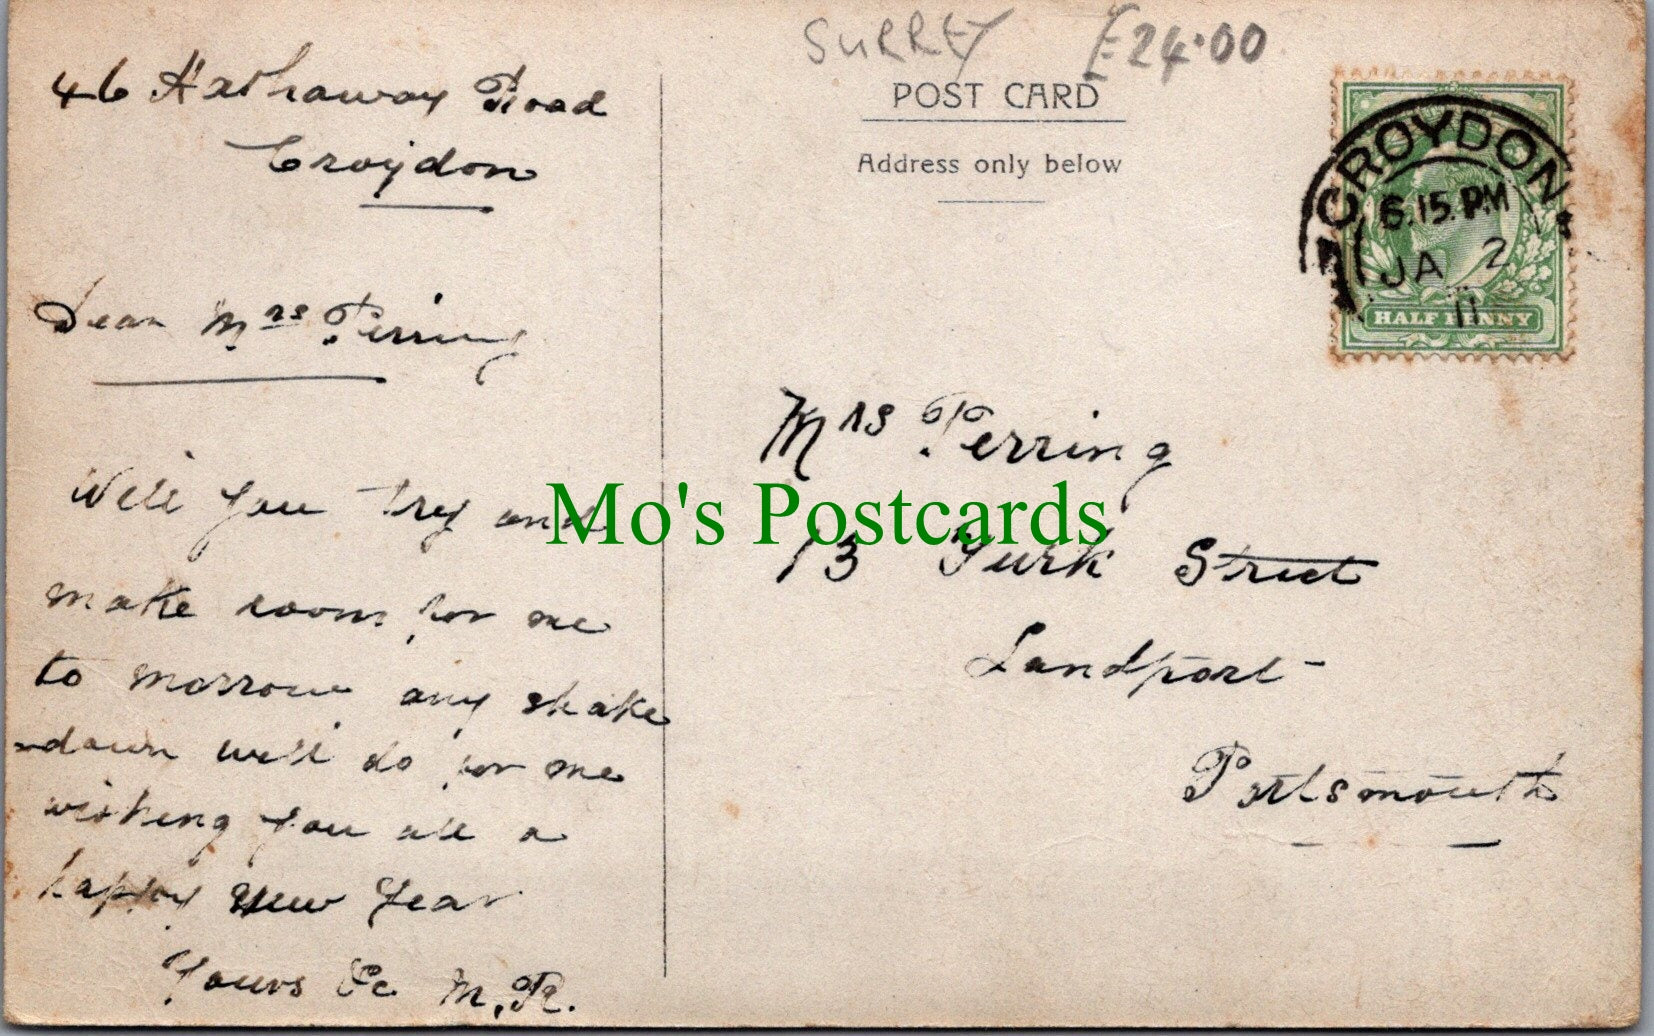 46 Hathaway Road
Croydon
Dear Mrs Perring
Will you try and
make room for me
to morrow any shake
-down will do for me
wishing you all a
happy New Year
Yours &c M.R.
SURREY £24.00
POST CARD
Address only below
CROYDON
6.15 PM
JA 2
11
HALF PENNY
Mrs Perring
13 York Street
Landport
Portsmouth
Mo's Postcards